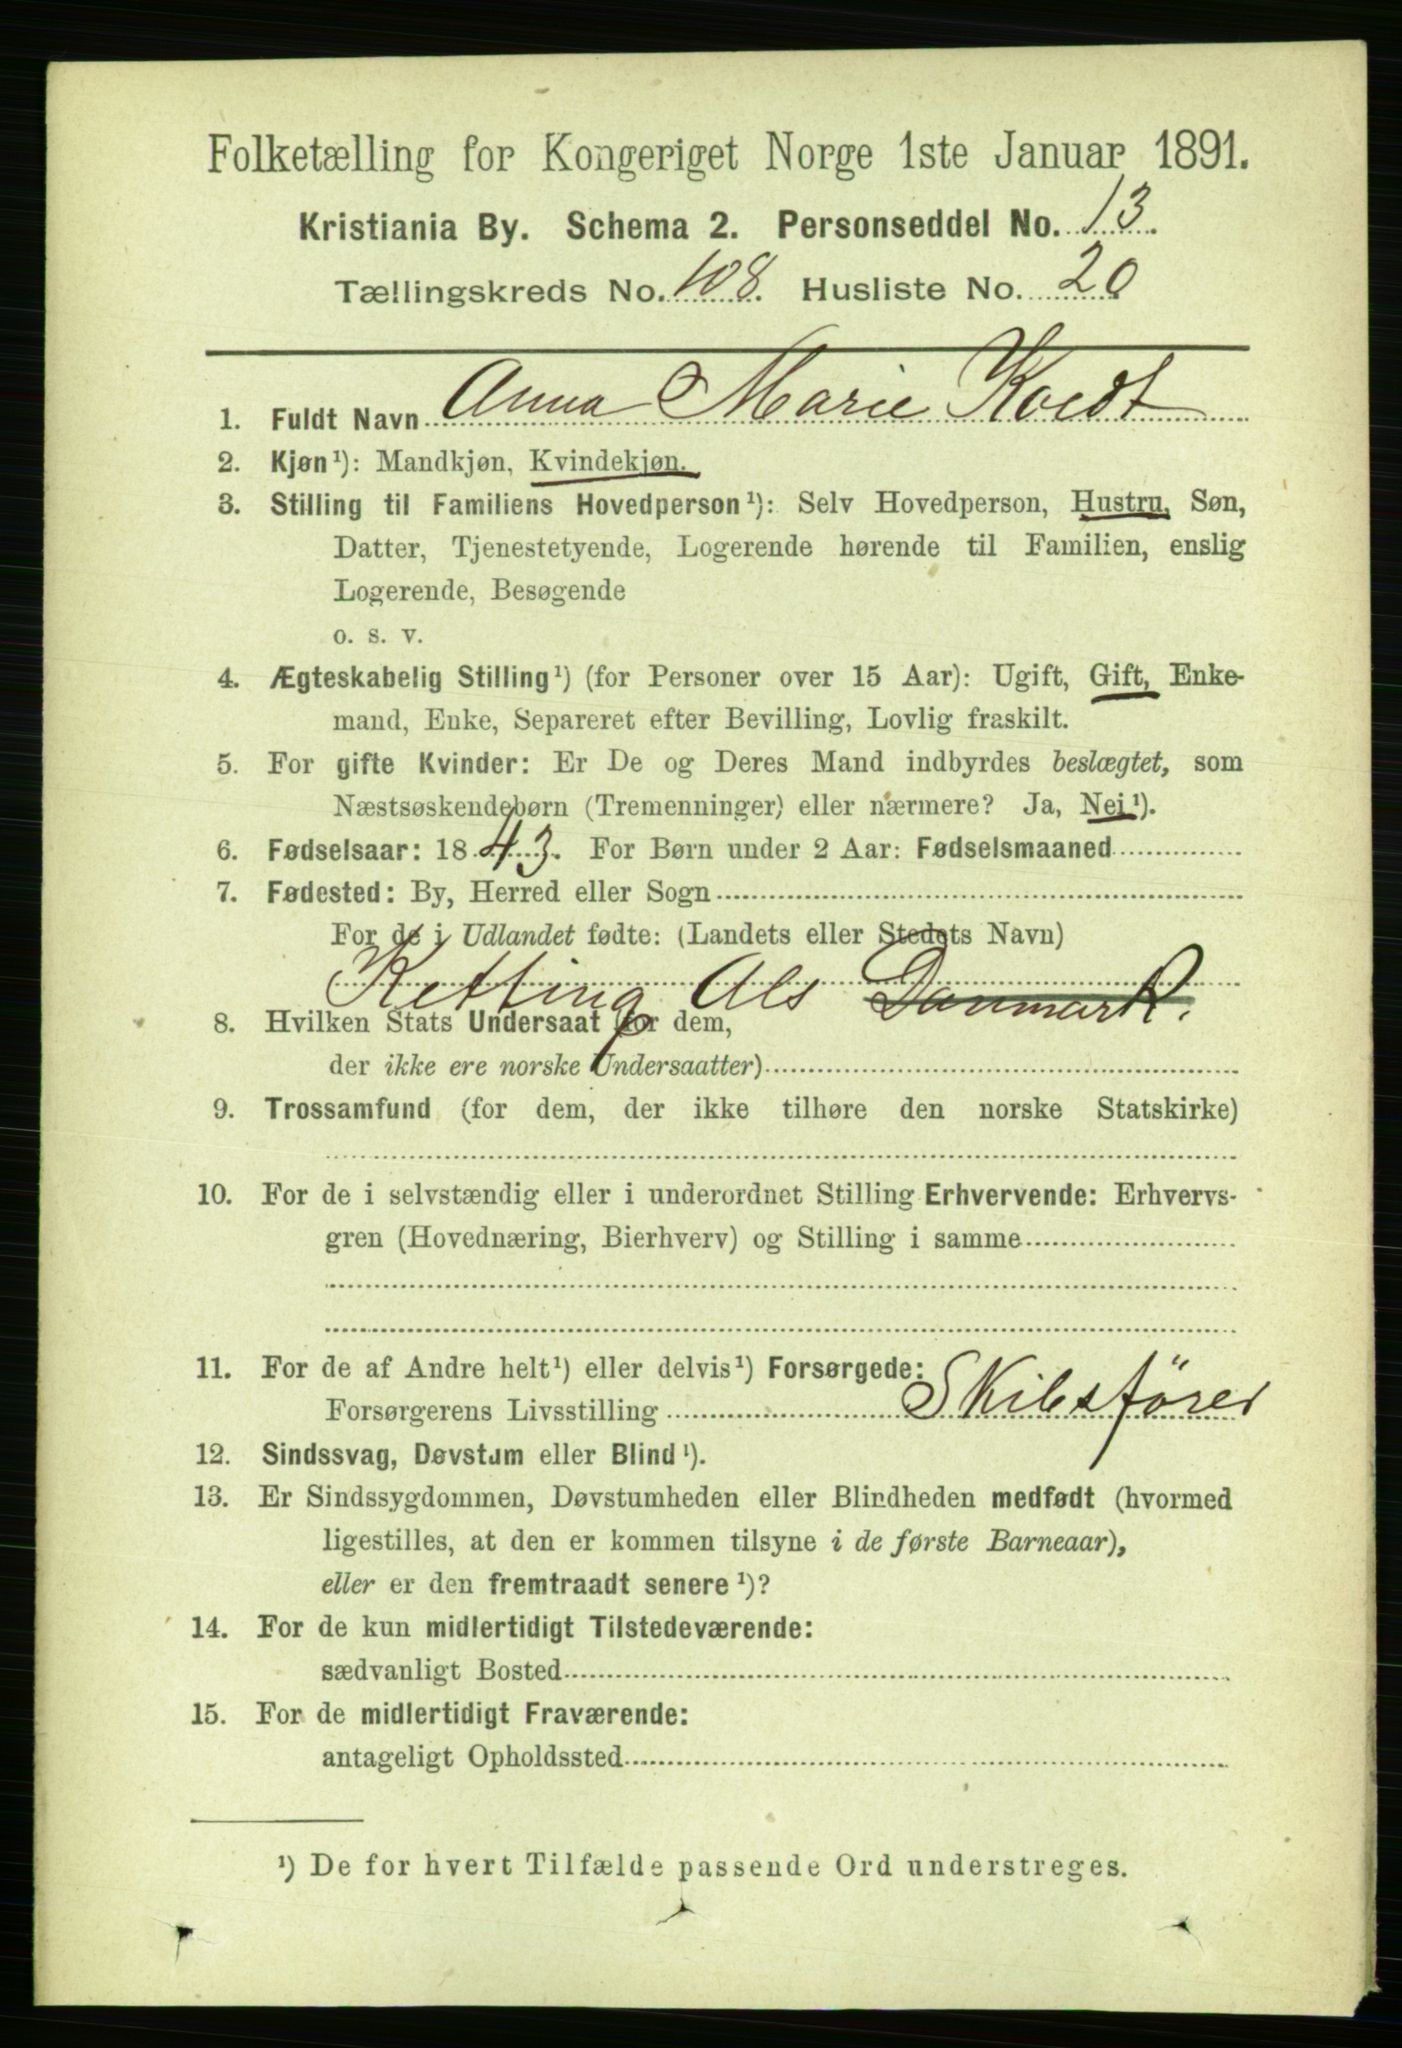 Folketælling for Kongeriget Norge 1ste Januar 1891.
Kristiania By. Schema 2. Personseddel No. 13.
Tællingskreds No. 108. Husliste No. 20
1. Fuldt Navn Anna Marie Koedt
2. Kjøn¹): Mandkjøn, Kvindekjøn.
3. Stilling til Familiens Hovedperson¹): Selv Hovedperson, Hustru, Søn,
Datter, Tjenestetyende, Logerende hørende til Familien, enslig
Logerende, Besøgende
o. s. v.
4. Ægteskabelig Stilling¹) (for Personer over 15 Aar): Ugift, Gift, Enke-
mand, Enke, Separeret efter Bevilling, Lovlig fraskilt.
5. For gifte Kvinder: Er De og Deres Mand indbyrdes beslægtet, som
Næstsøskendebørn (Tremenninger) eller nærmere? Ja, Nei¹).
6. Fødselsaar: 1843. For Børn under 2 Aar: Fødselsmaaned
7. Fødested: By, Herred eller Sogn
For de i Udlandet fødte: (Landets eller Stedets Navn)
Ketting Als Danmark.
8. Hvilken Stats Undersaat (for dem,
der ikke ere norske Undersaatter)
9. Trossamfund (for dem, der ikke tilhøre den norske Statskirke)
10. For de i selvstændig eller i underordnet Stilling Erhvervende: Erhvervs-
gren (Hovednæring, Bierhverv) og Stilling i samme
11. For de af Andre helt¹) eller delvis¹) Forsørgede:
Forsørgerens Livsstilling Skibsförer
12. Sindssvag, Døvstum eller Blind¹).
13. Er Sindssygdommen, Døvstumheden eller Blindheden medfødt (hvormed
ligestilles, at den er kommen tilsyne i de første Barneaar),
eller er den fremtraadt senere¹)?
14. For de kun midlertidigt Tilstedeværende:
sædvanligt Bosted
15. For de midlertidigt Fraværende:
antageligt Opholdssted
¹) De for hvert Tilfælde passende Ord understreges.